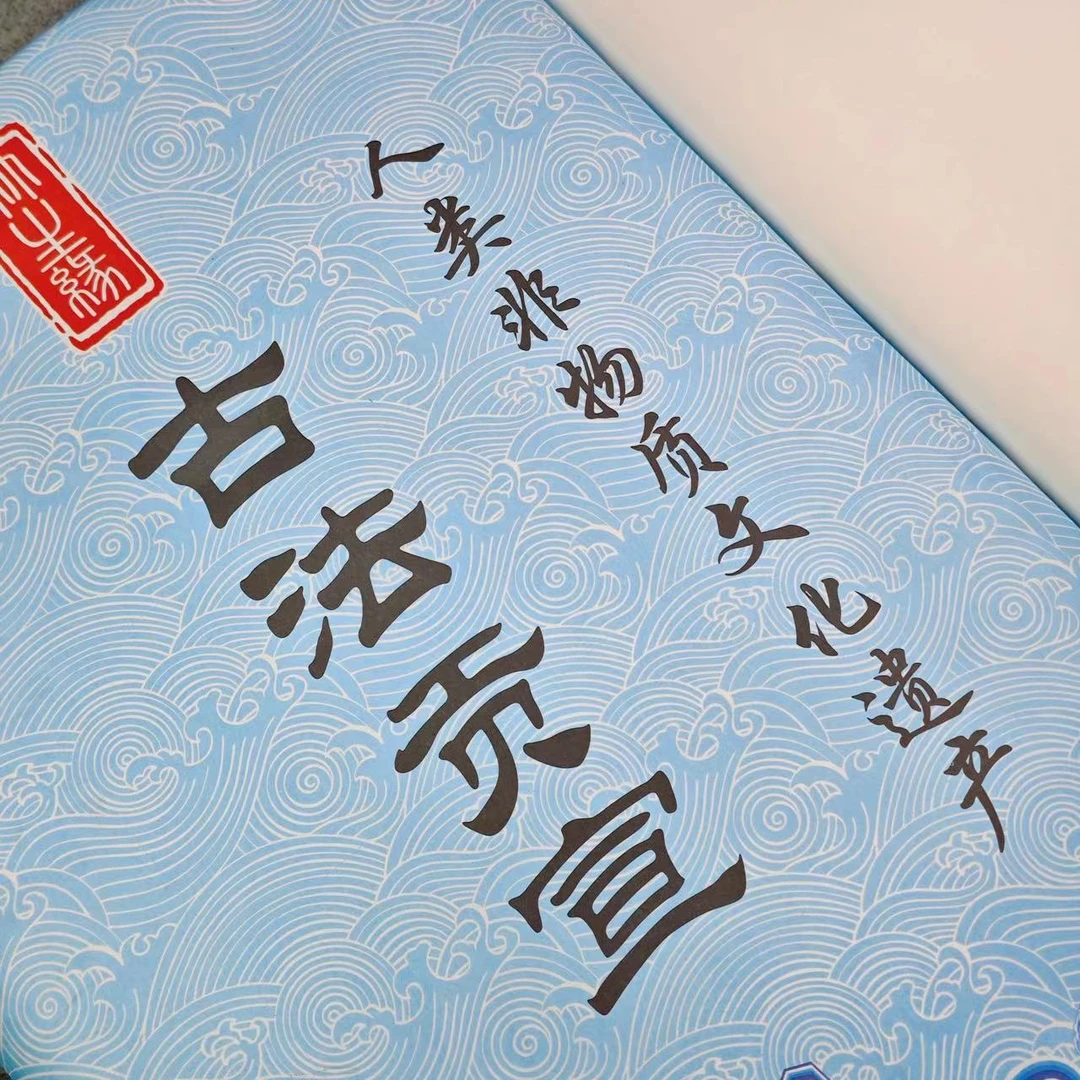 人类非物质文化遗产
古法贡宣